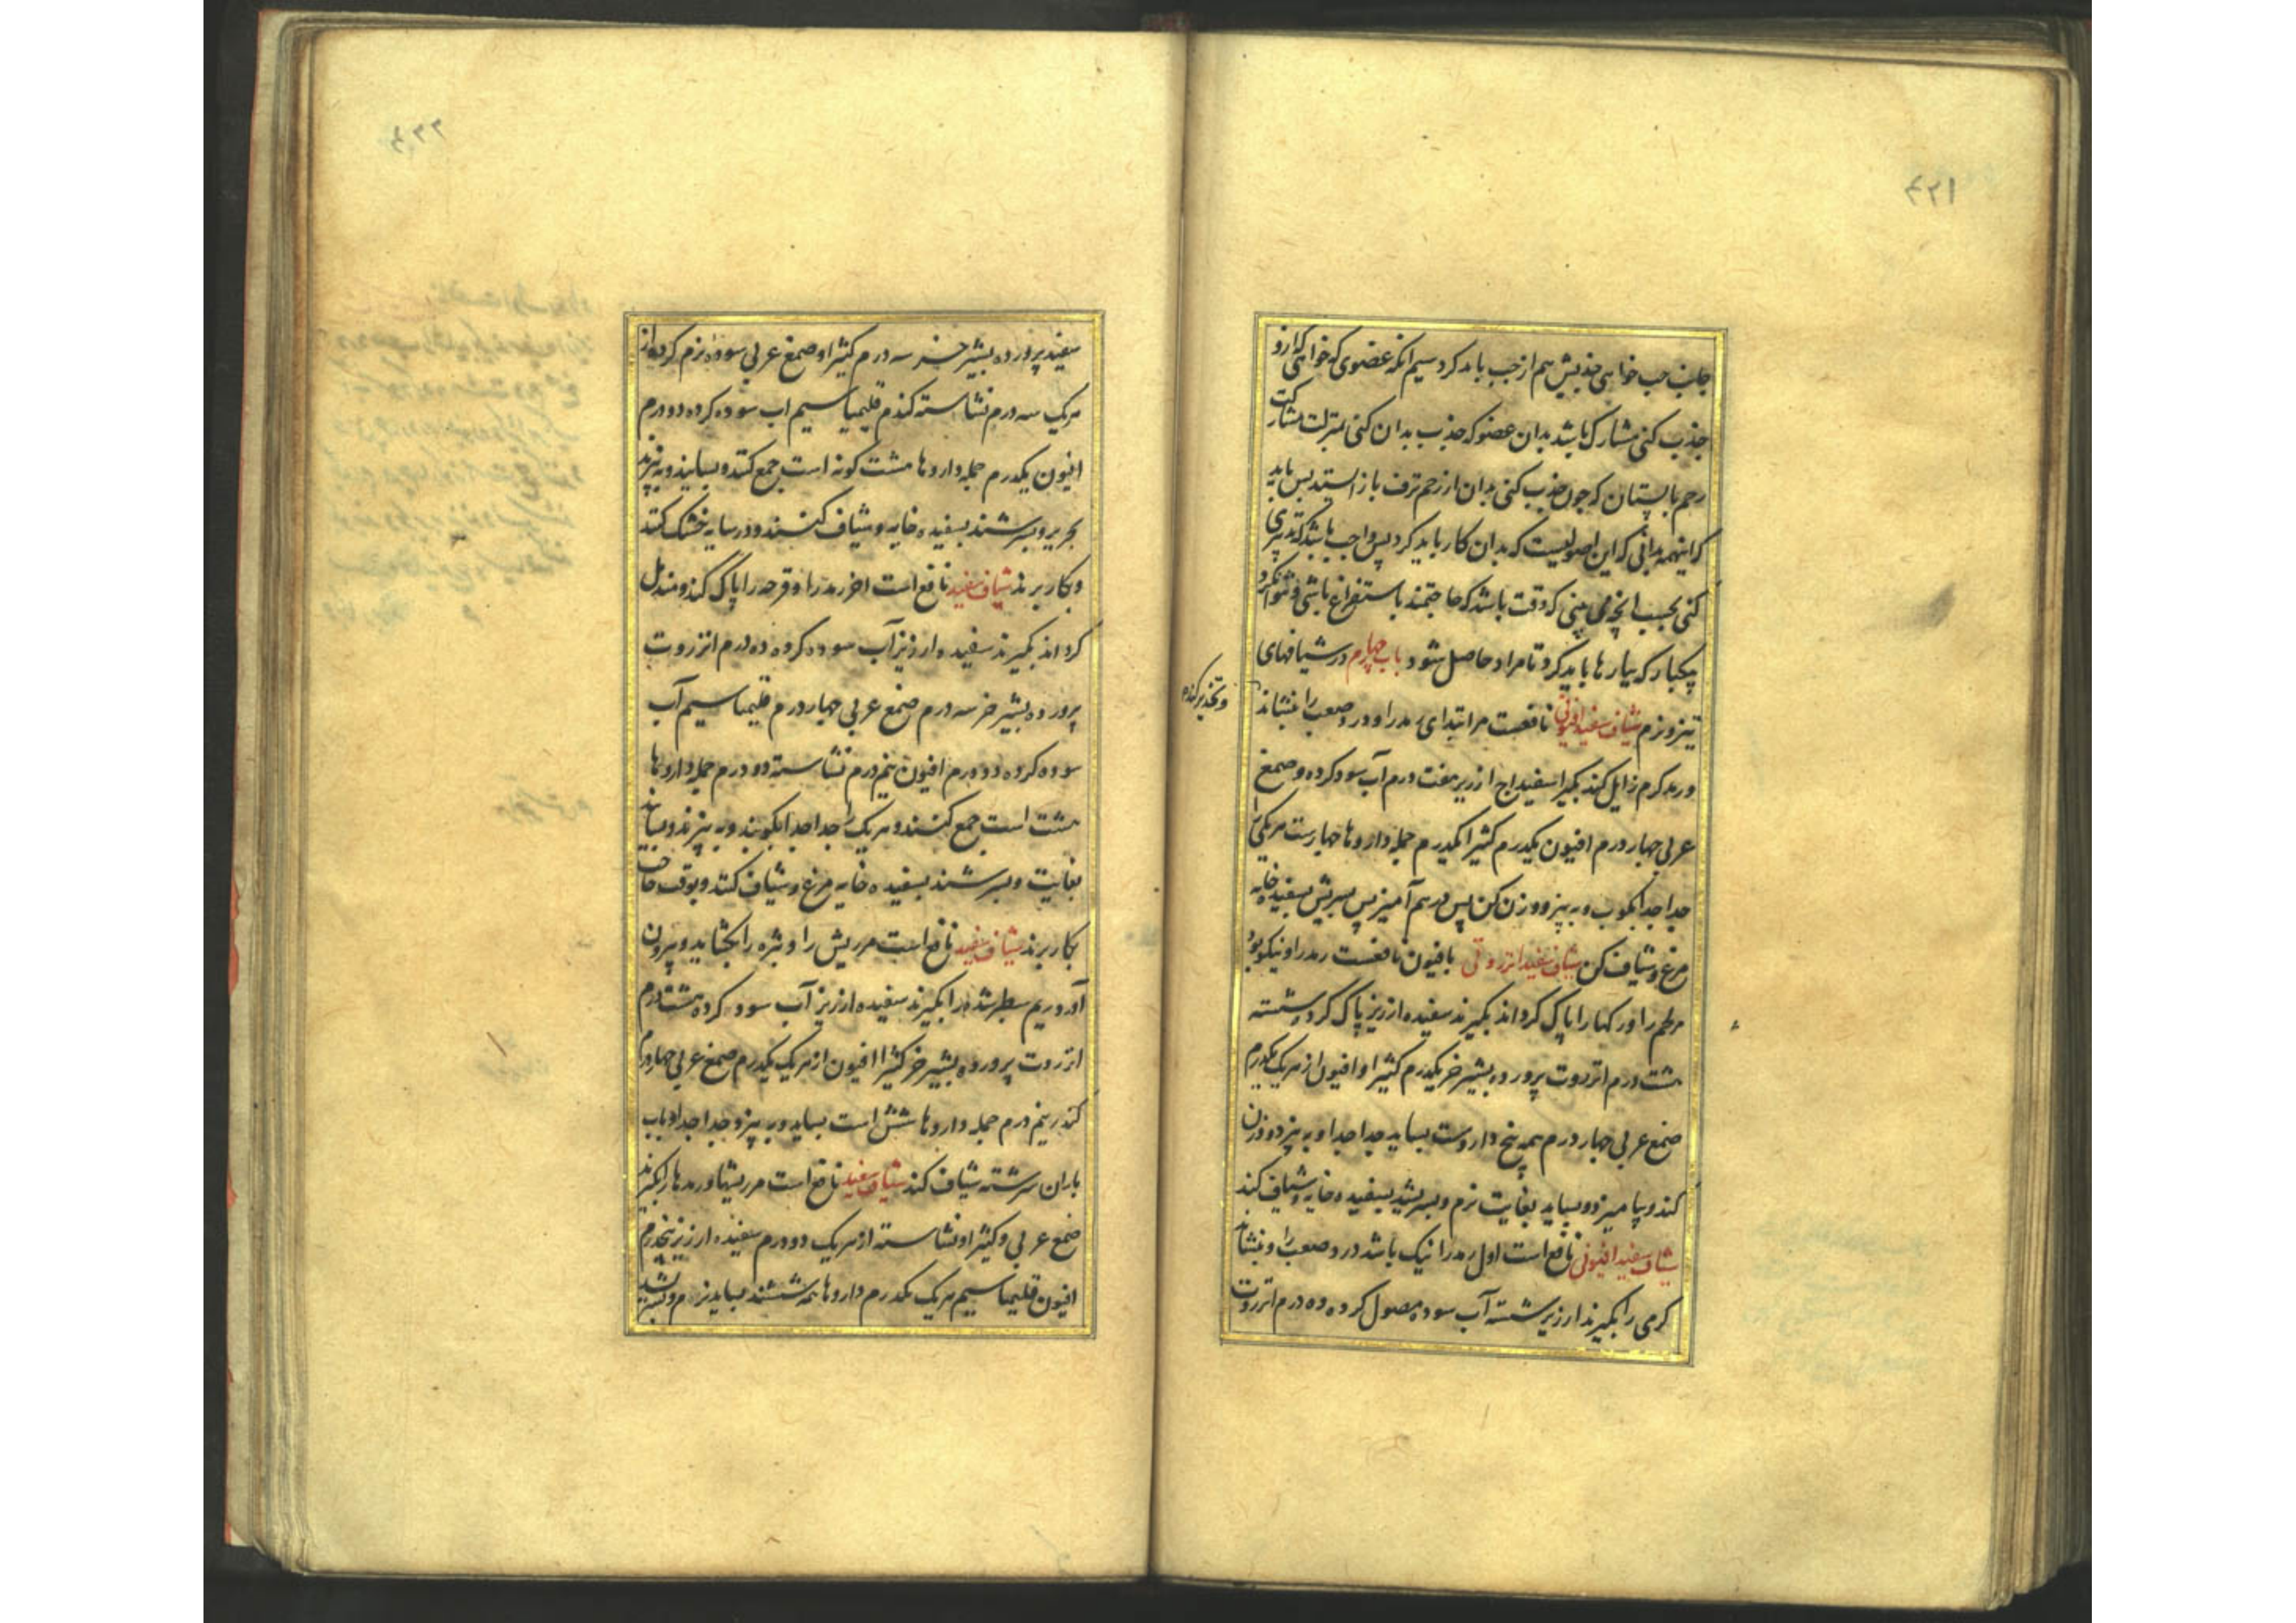 جانب چپ خواهی جذبش هم از چپ باید کرد سیم آنکه عضوی که خواهی که ازو
جذب کنی مشارک باشد بدان عضو که جذب بدان کنی بمنزلت مشارکت
رحم با پستان که چون جذب کنی بدان از رحم نزف باز ایستد پس باید
که اینهمه بدانی که این اصولیست که بدان کار باید کرد پس واجب باشد که تدبیری
کنی بحسب آنچه می بینی که وقت باشد که حاجتمند باستفراغ باشی و نتوان کرد
بیکبار که ببارها باید کرد تا مراد حاصل شود باب چهارم در شیافهای
تیز و نرم شیاف سفید افیونی نافعست مر ابتدای رمد را و درد صعب را بنشاند
و رمد گرم زایل کند بگیر اسفیداج ارزیر هفت درم آب سود کرده و صمغ
عربی چهار درم افیون یکدرم کثیرا یکدرم جمله داروها چهارست هر یکی را
جدا جدا بکوب و به بیز و وزن کن پس درهم آمیز پس بسریش بسفیده خایه
مرغ و شیاف کن شیاف سفید انزروتی بافیون نافعست رمد را و نیکو بود
مر لحم را و رکها را پاک کرداند بگیرند سفیده ارزیز پاک کرده شسته
هشت درم انزروت پرورده بشیر خر یکدرم کثیرا و افیون از هر یک یکدرم
صمغ عربی چهار درم همه پنج داروست بساید جدا جدا و به بیزد و وزن
کند و بیامیزد و بساید بغایت نرم و بسریشد بسفیده خایه و شیاف کند
شیاف سفید افیونی نافع است اول رمد را نیک باشد درد صعب را و بنشاند
گرمی را بگیرند ارزیر شسته آب سوده مصول کرده ده درم انزروت
سفید پرورده بشیر خر سه درم کثیرا و صمغ عربی سوده نرم کرده از
هریک سه درم نشاسته کندم قلیمیا سیم آب سوده کرده دو درم
افیون یکدرم جمله داروها هشت کونه است جمع کنند و بسایند و به بیزند
بحریر و بسرشند بسفیده خایه و شیاف کنند و در سایه خشک کنند
و بکار برند شیاف سفید نافع است اخر رمد را و قرحه را پاک کند و مندمل
کرداند بگیرند سفیده ارزیز آب سوده کرده ده درم انزروت
پرورده بشیر خر سه درم صمغ عربی چهار درم قلیمیا سیم آب
سوده کرده دو درم افیون نیم درم نشاسته دو درم جمله داروها
هشت است جمع کنند و هریک را جدا جدا بکوبند و به بیزند و بسایند
بغایت و بسرشند بسفیده خایه مرغ و شیاف کنند و بوقت حاجت
بکار برند شیاف سفید نافع است مر ریش را و بثره را بکشاید و بیرون
آورد ریم سطبر شده را بگیرند سفیده ارزیز آب سود کرده هشت درم
انزروت پرورده بشیر خر کثیرا افیون از هریک یکدرم صمغ عربی چهار درم
کندر نیم درم جمله داروها شش است بساید و به بیزد جدا جدا و باب
باران سرشته شیاف کند شیاف سفید نافع است مر ریشها و رمدها را بگیرند
صمغ عربی و کثیرا و نشاسته از هریک دو درم سفیده ارزیز پنجدرم
افیون قلیمیا سیم هریک یکدرم داروها همه ششند بساید نرم و بسریشد